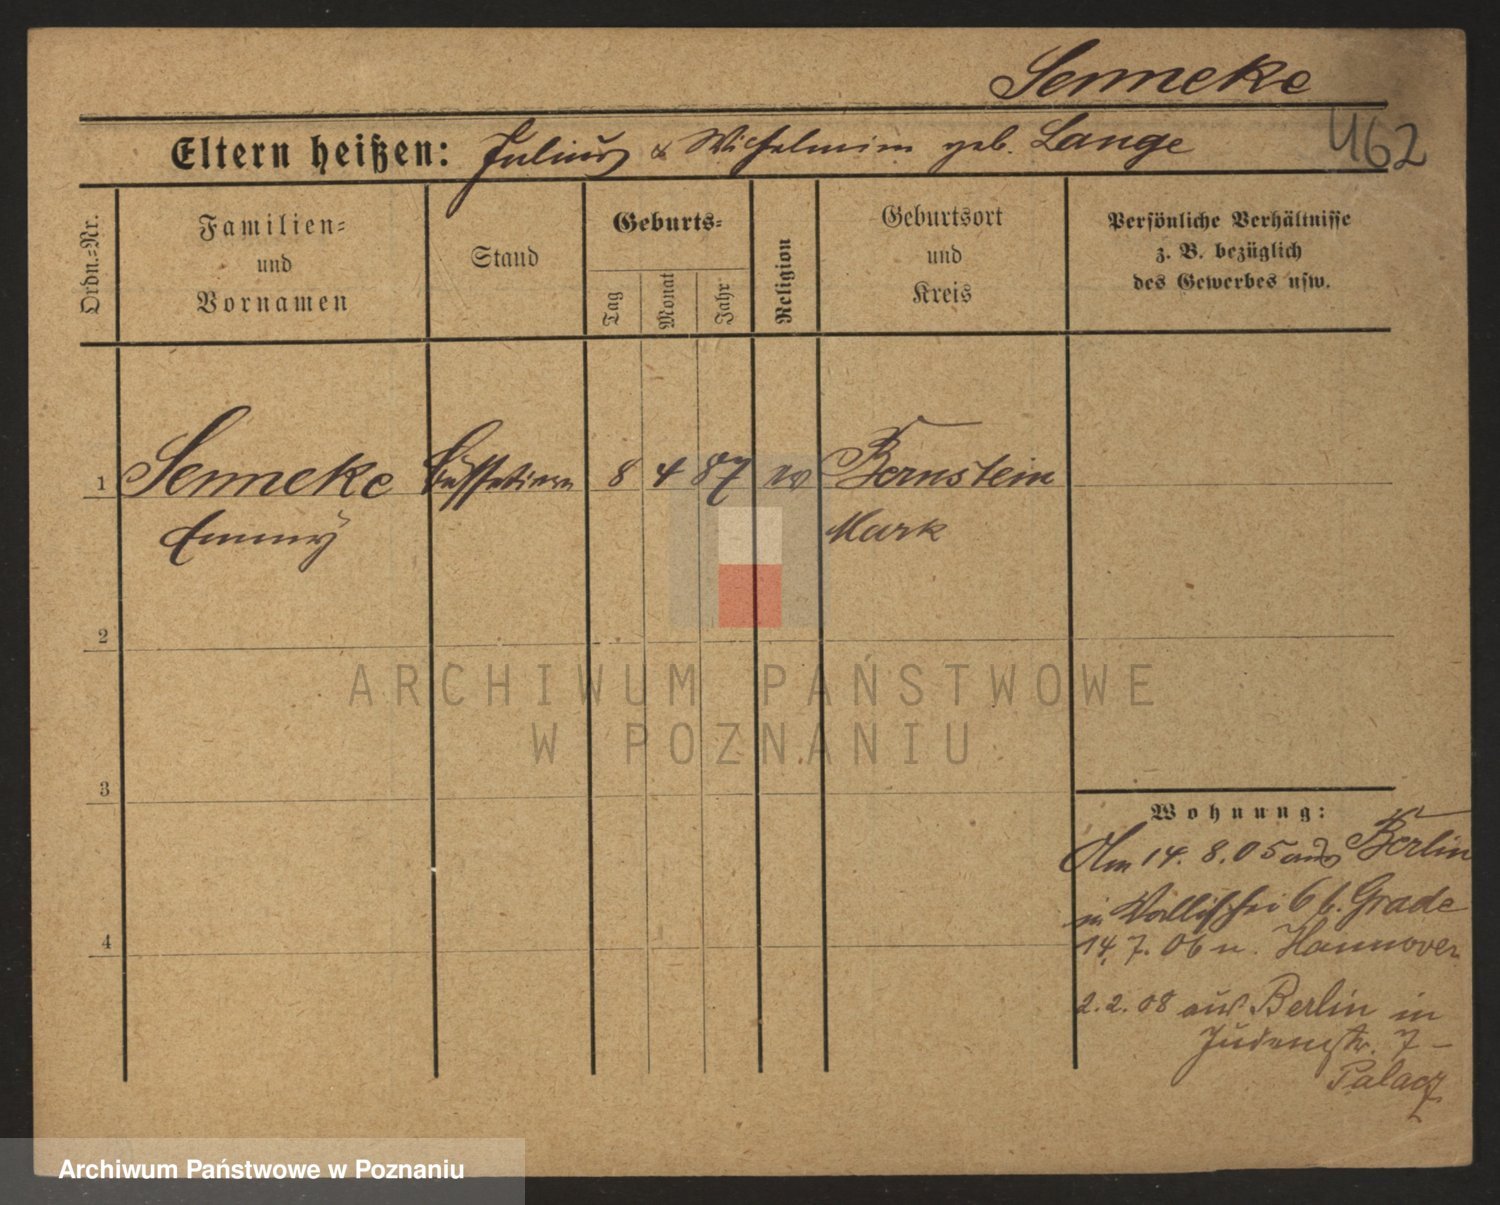 Senneke
Eltern heißen: Julius & Wilhelmine geb. Lange
462
Ordn.=Nr.
Familien=
und
Vornamen
Stand
Geburts=
Tag
Monat
Jahr
Religion
Geburtsort
und
Kreis
Persönliche Verhältnisse
z. B. bezüglich
des Gewerbes usw.
1 Senneke Büffetiere 8 4 87 Bernstein
Emmy Mark
2
3
4
Wohnung:
Am 14. 8. 05 aus Berlin
in Wallischei 6 b. Grade
14. 7. 06 n. Hannover
2. 2. 08 aus Berlin in
Judenstr. 7 -
Palacz
ARCHIWUM PAŃSTWOWE
W POZNANIU
Archiwum Państwowe w Poznaniu